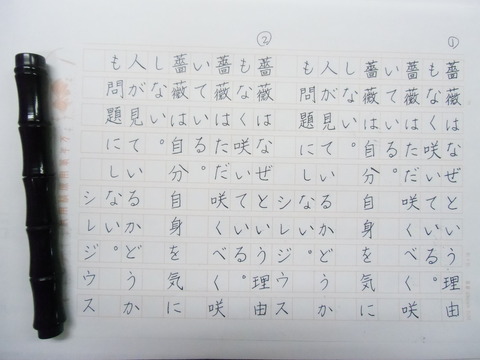 ①
薔薇はなぜという理由
もなく咲いている。
薔薇はただ咲くべく咲
いている。
薔薇は自分自身を気に
しない。
人が見ているかどうか
も問題にしない。
シレジウス
②
薔薇はなぜという理由
もなく咲いている。
薔薇はただ咲くべく咲
いている。
薔薇は自分自身を気に
しない。
人が見ているかどうか
も問題にしない。
シレジウス